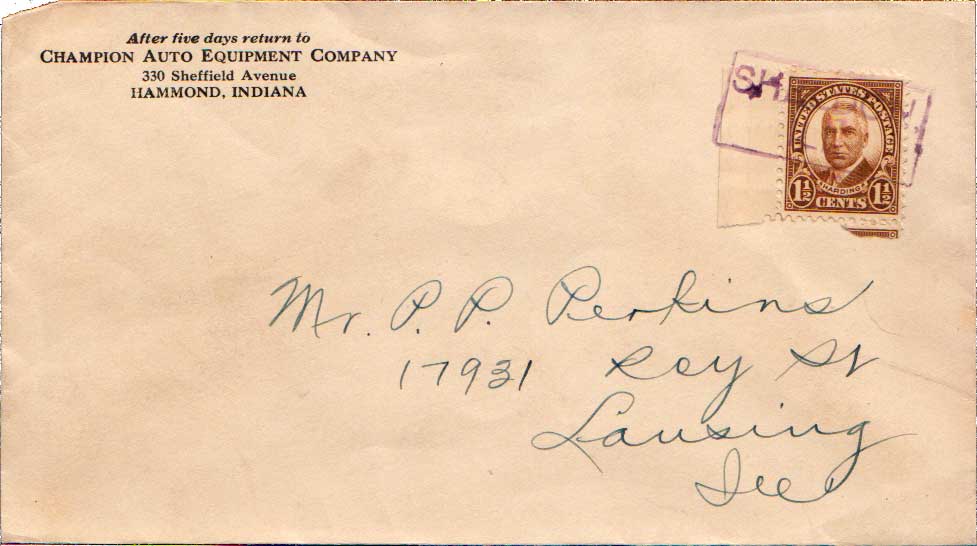 After five days return to
CHAMPION AUTO EQUIPMENT COMPANY
330 Sheffield Avenue
HAMMOND, INDIANA
UNITED STATES POSTAGE
HARDING
1½ 1½
CENTS
Mr. P. P. Perkins
17931 Roy St
Lansing
Ill